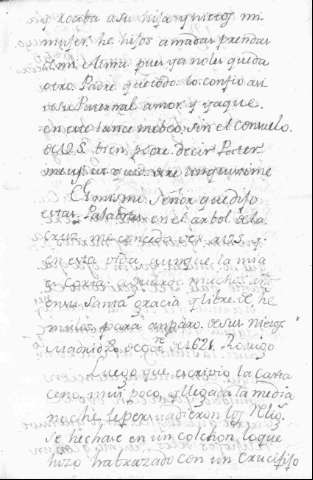 su hija y nietos mi
muger, he hijos amadas prendas
del mi Alma pues ya no les queda
otro Padre que todo lo confio asi
Paternal amor, y ya que
en este lance me veo, sin el consuelo
de V.S. bien podre decir Pater
mi ut quid dereliquisti me
El mismo Señor que dijo
estas Palabras en el arbol de la
Cruz me conceda ver a V.S. y
en esta vida, aunque la mia
es corta, a muchos
en su santa gracia y libre de he
para amparo de sus nietos
Madrid de 1621 Rodrigo
Luego que escrivio la Carta
ceno mui poco, y llegada la media
noche le persuadieron los Relig.
se hechase en un colchon lo que
hizo habrazado con un Crucifijo